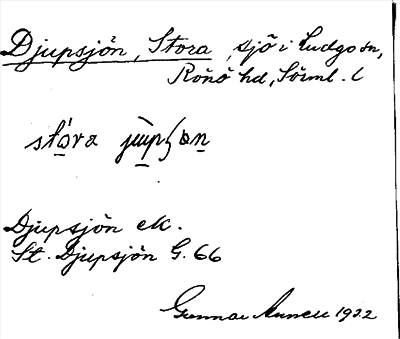 Djupsjön, Stora, sjö i Ludgo sn,
Rönö hd, Sörml. l
stóra jùpʃon
Djupsjön ek.
St. Djupsjön G. 66
Gunnar 1922